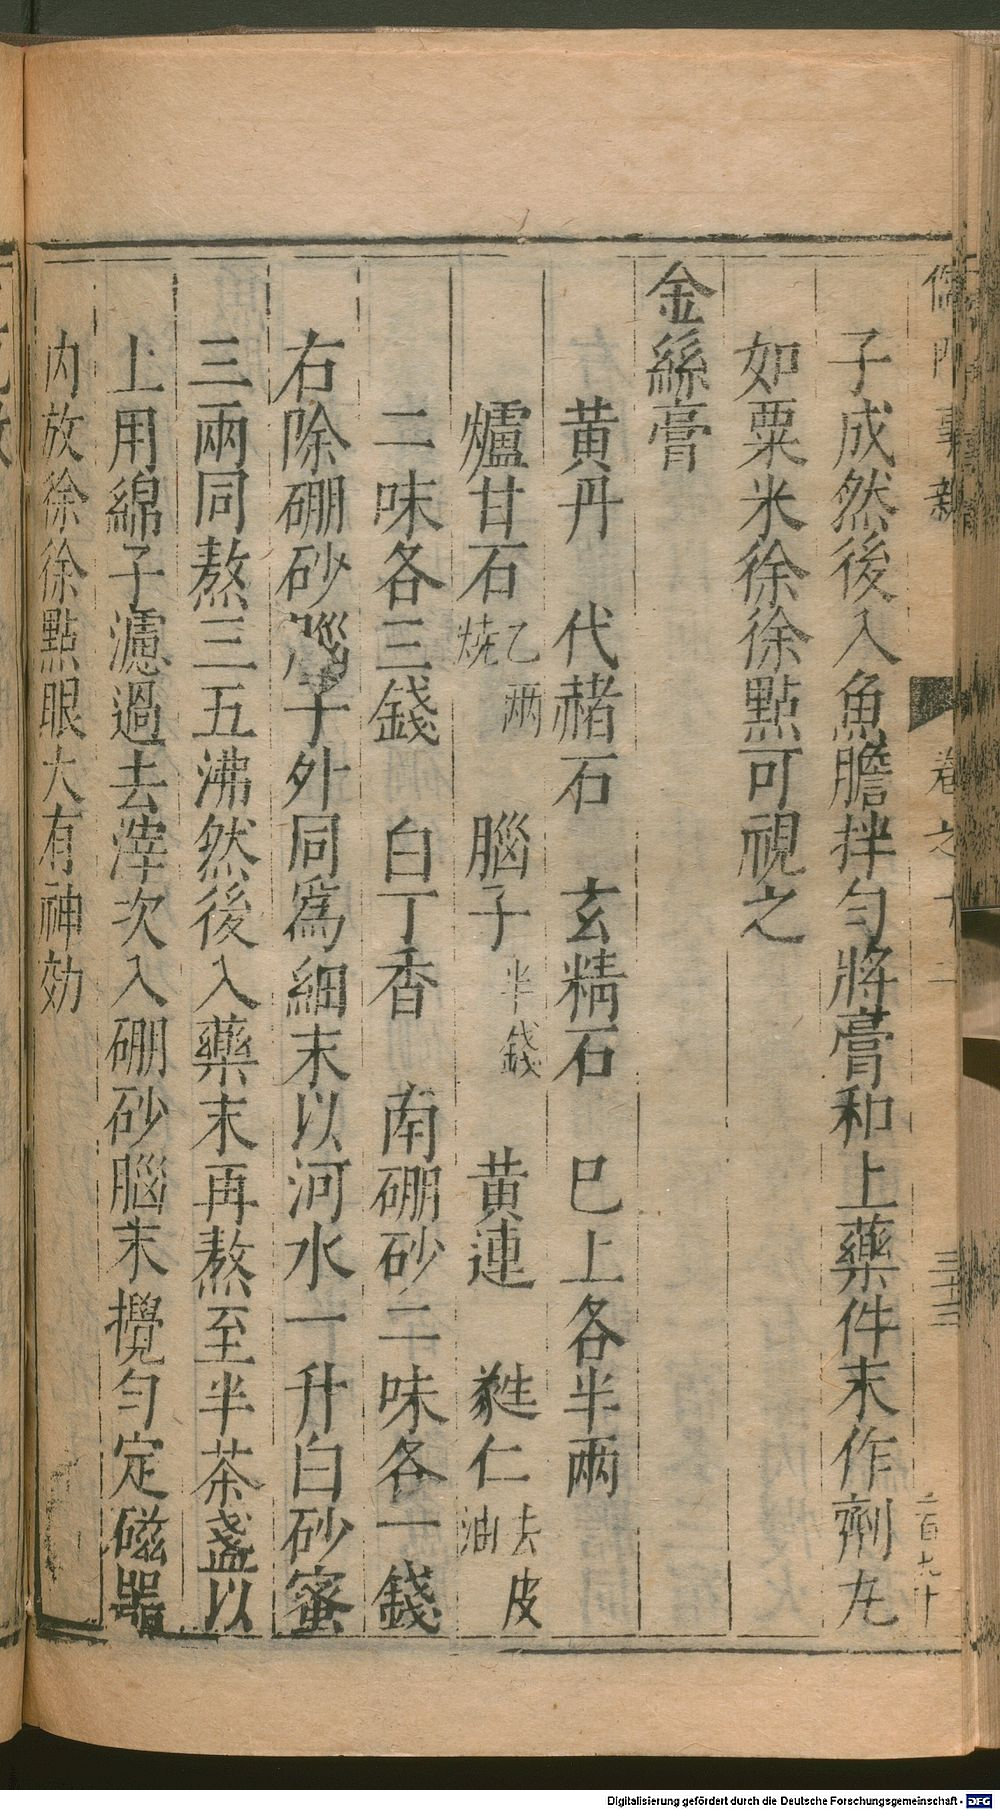 儒門事親 卷之十二 三十三 二百九十
子成然後入魚膽拌勻將膏和上藥件末作劑丸
如粟米徐徐點可視之
金絲膏
黃丹 代赭石 玄精石 巳上各半兩
爐甘石乙兩燒 腦子半錢 黃連 蕤仁去皮油
二味各三錢 白丁香 南硼砂二味各一錢
右除硼砂腦子外同爲細末以河水一升白砂蜜
三兩同熬三五沸然後入藥末再熬至半茶盞以
上用綿子濾過去滓次入硼砂腦末攪勻定磁器
内放徐徐點眼大有神効
Digitalisierung gefördert durch die Deutsche Forschungsgemeinschaft - DFG